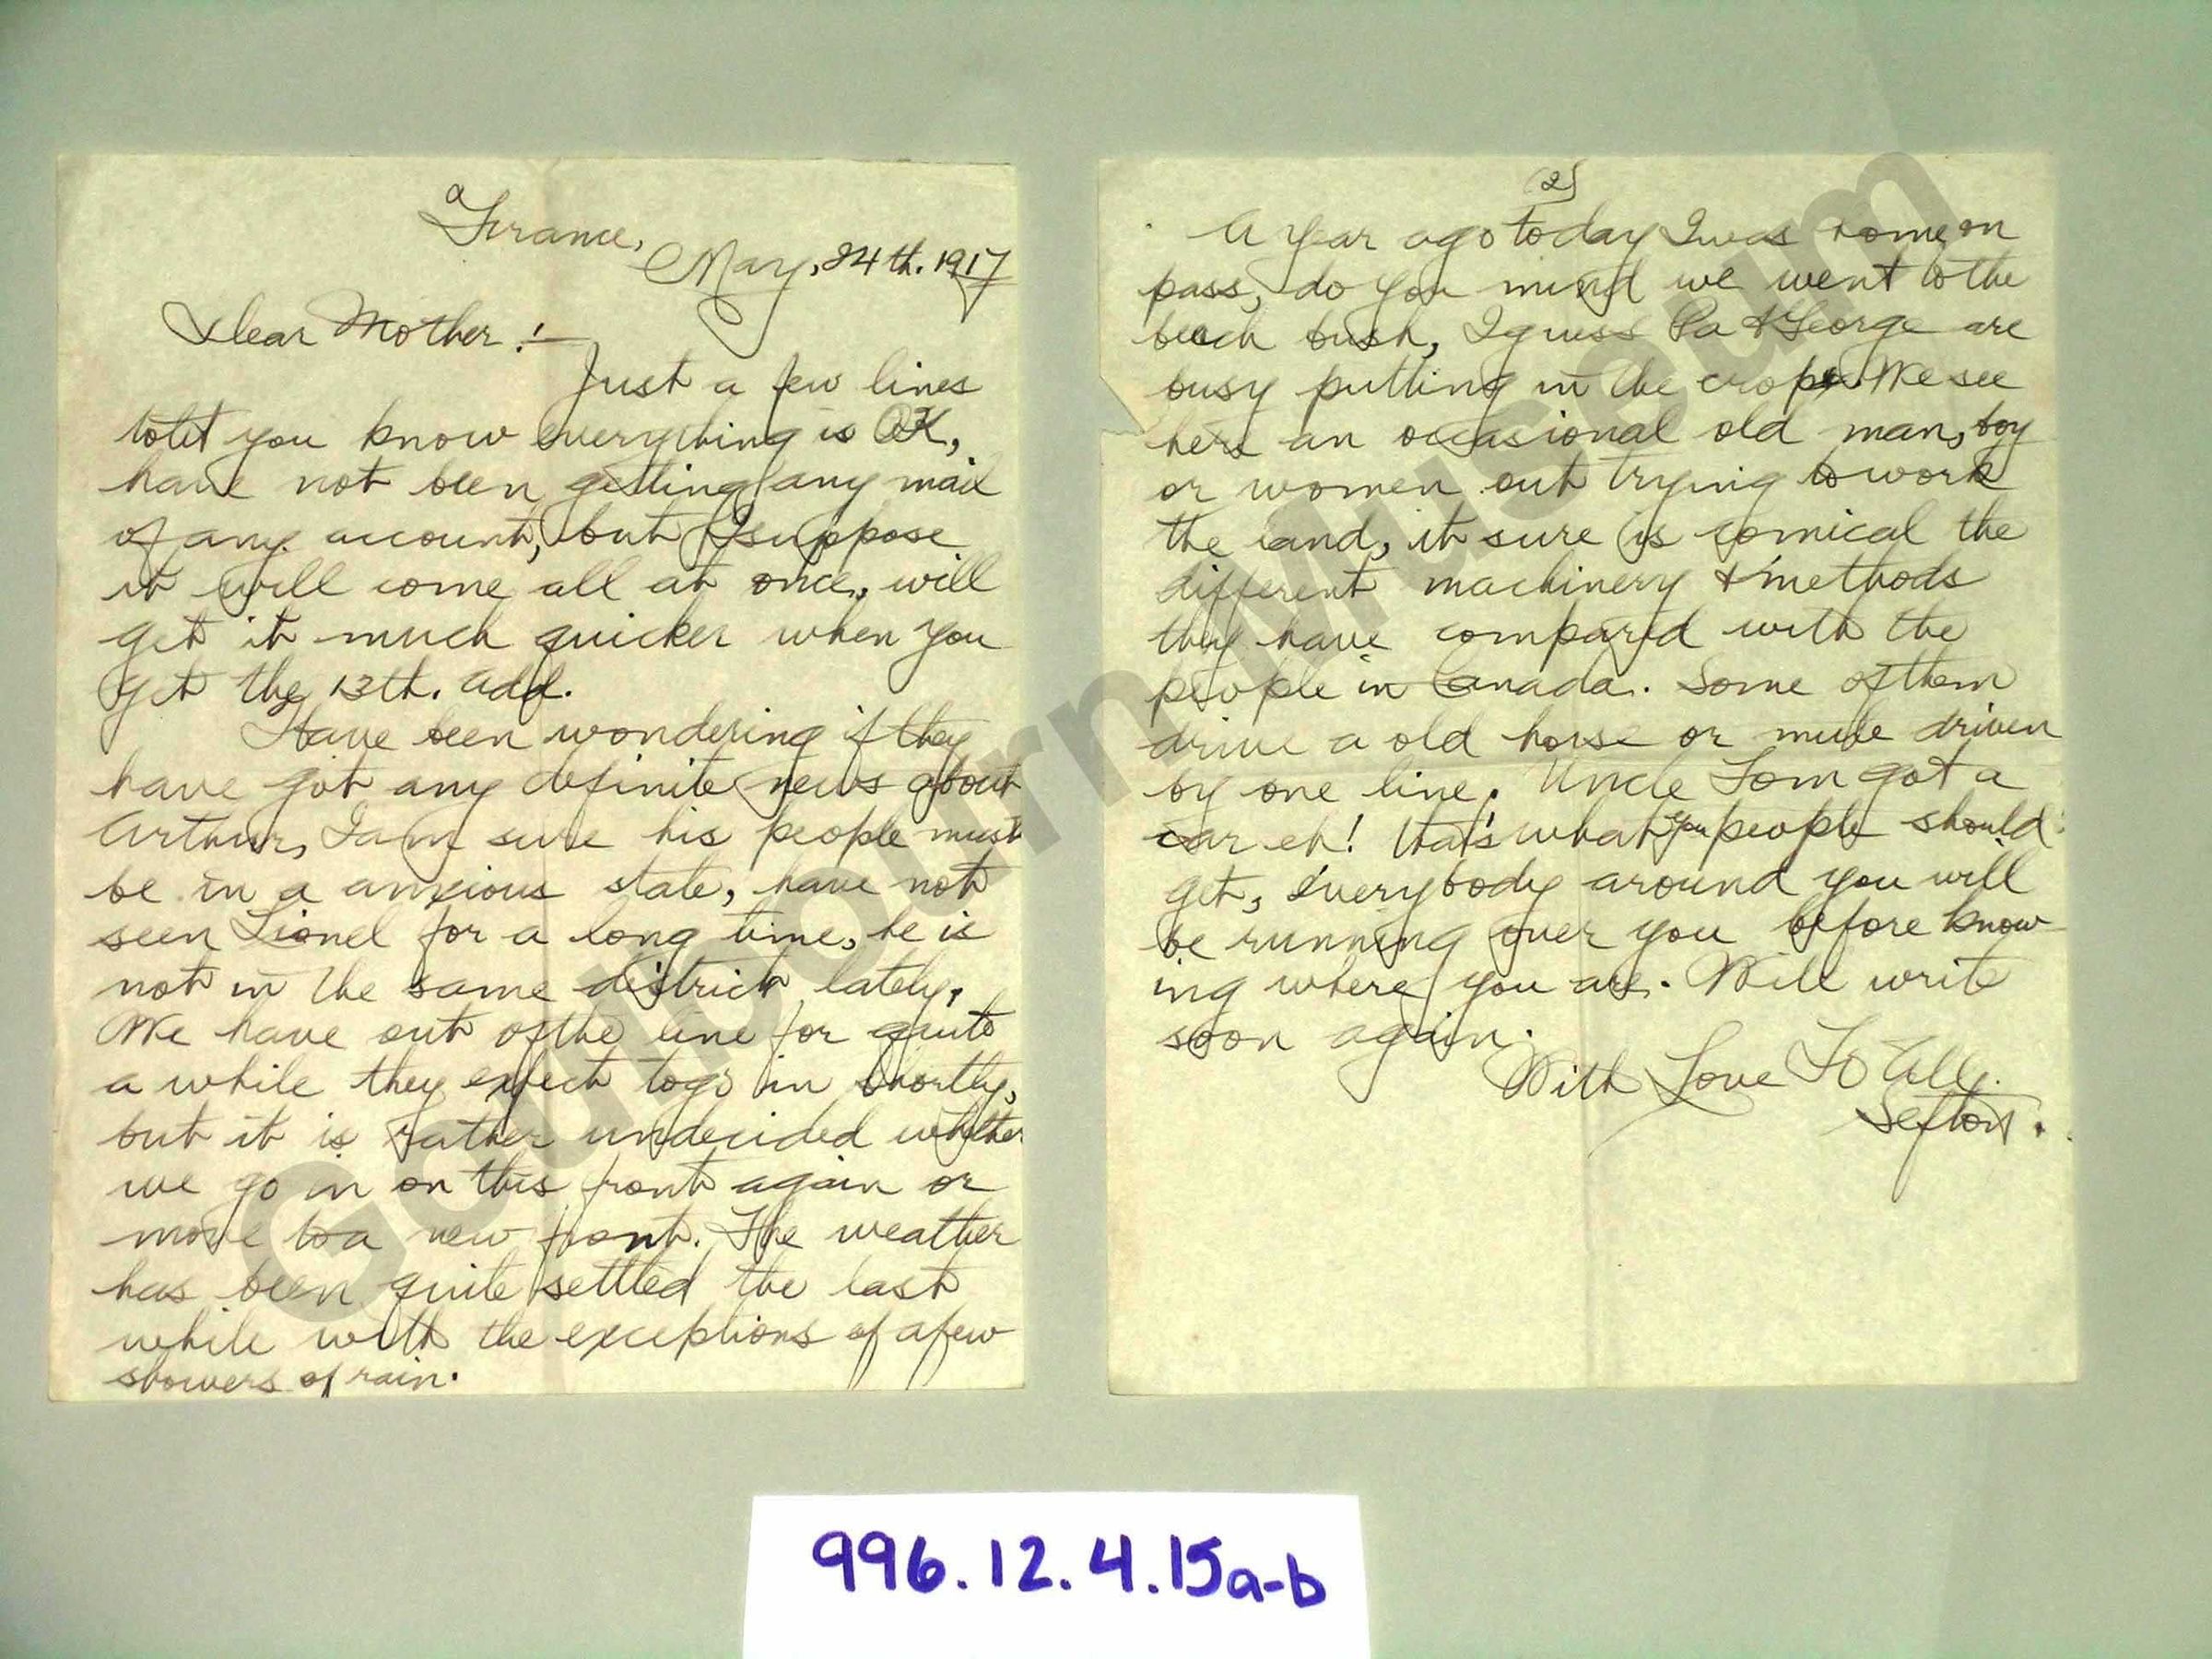 France,
May, 24th. 1917
Dear Mother!—
Just a few lines
to let you know everything is OK,
have not been getting any mail
of any account, but I suppose
it will come all at once, will
get it much quicker when you
get the 13th. add.
Have been wondering if they
have got any definite news about
Arthur, I am sure his people must
be in a anxious state, have not
seen Lionel for a long time, he is
not in the same district lately,
We have out of the line for quite
a while they expect to go in shortly,
but it is rather undecided whether
we go in on this front again or
move to a new front. The weather
has been quite settled the last
while with the exceptions of a few
showers of rain.
(2)
A year ago today I was home on
pass, do you mind we went to the
beech bush, I guess Pa & George are
busy putting in the crops. We see
here an occasional old man, boy
or women out trying to work
the land, it sure is comical the
different machinery & methods
they have compared with the
people in Canada. Some of them
drive a old horse or mule driven
by one line. Uncle Tom got a
car eh! that's what you people should
get, everybody around you will
be running over you before know-
ing where you are. Will write
soon again.
With Love To All.
Sefton.
Goulbourn Museum
996.12.4.15a-b